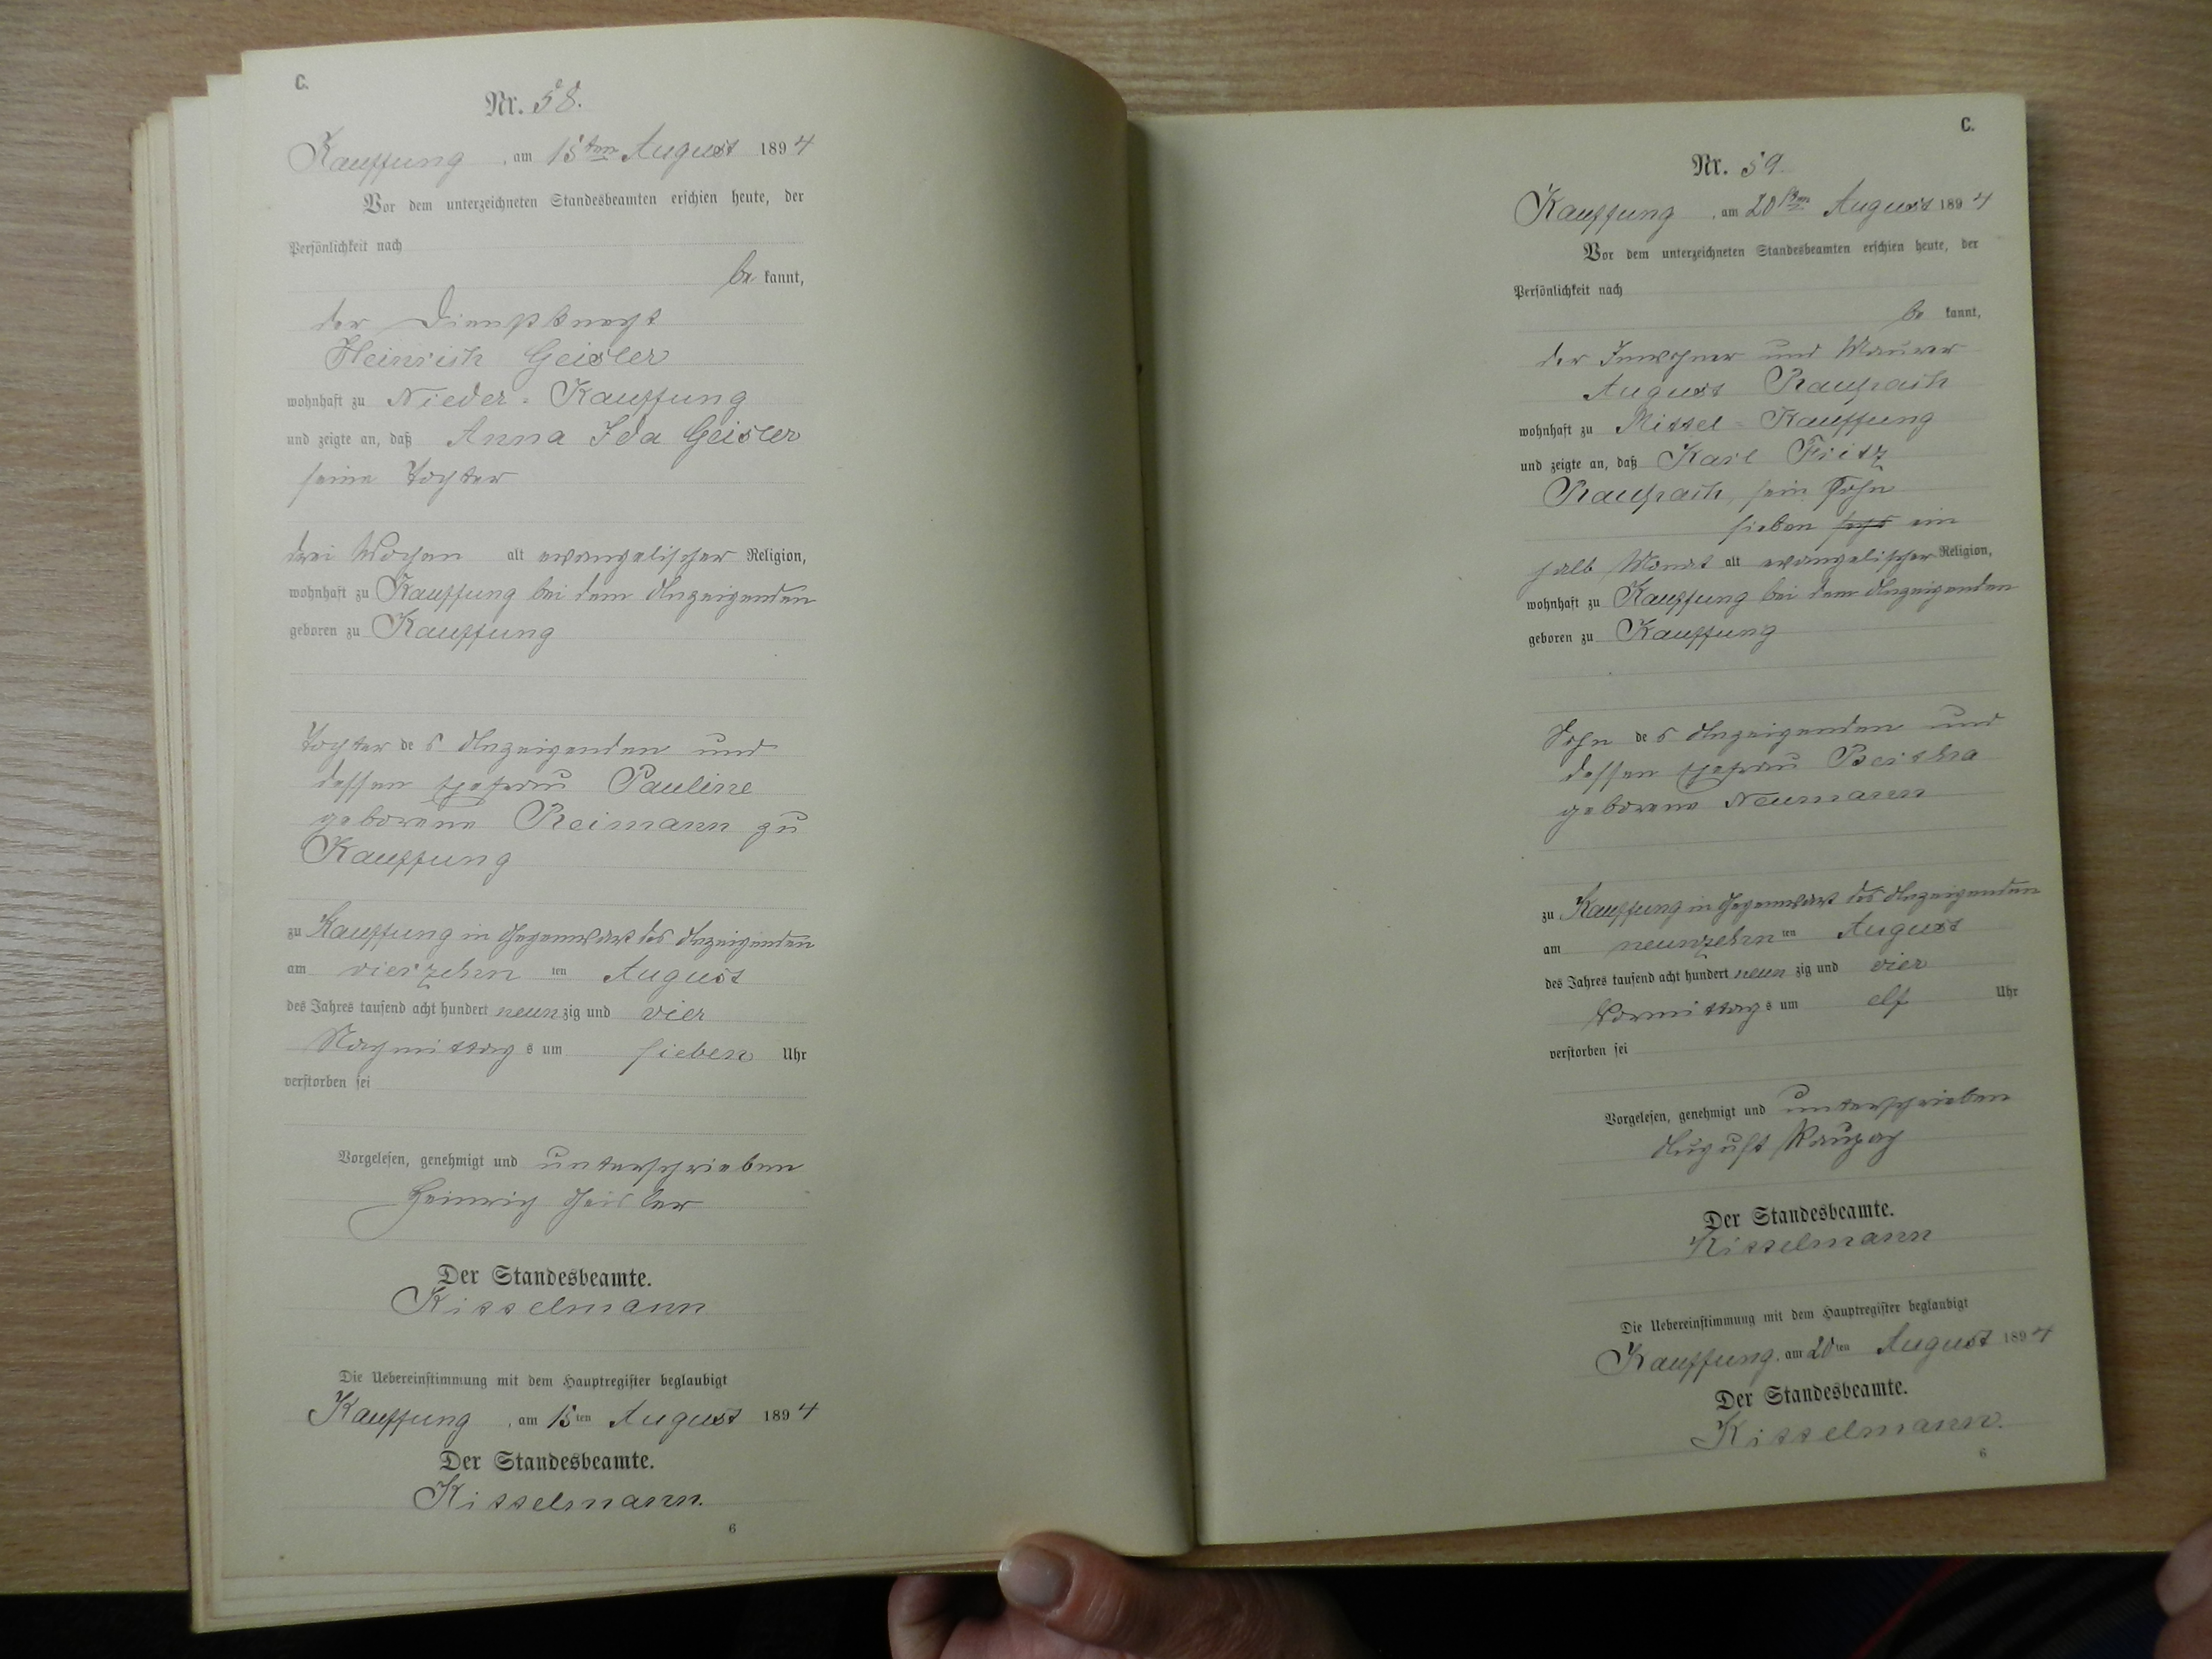 C.
Nr. 58.
Kauffung, am 15ten August 1894
Vor dem unterzeichneten Standesbeamten erschien heute, der
Persönlichkeit nach
be kannt,
der Dienstknecht
Heinrich Geisler
wohnhaft zu Nieder-Kauffung
und zeigte an, daß Anna Ida Geisler
seine Tochter
drei Wochen alt evangelischer Religion,
wohnhaft zu Kauffung bei dem Anzeigenden
geboren zu Kauffung
Tochter des Anzeigenden und
dessen Ehefrau Pauline
geborene Reimann zu
Kauffung
zu Kauffung in Gegenwart des Anzeigenden
am vierzehn ten August
des Jahres tausend acht hundert neunzig und vier
Nachmittags um sieben Uhr
verstorben sei
Vorgelesen, genehmigt und unterschrieben
Heinrich Geisler
Der Standesbeamte.
Kisselmann
Die Uebereinstimmung mit dem Hauptregister beglaubigt
Kauffung, am 15ten August 1894
Der Standesbeamte.
Kisselmann.
6
C.
Nr. 59
Kauffung, am 20ten August 1894
Vor dem unterzeichneten Standesbeamten erschien heute, der
Persönlichkeit nach
be kannt,
der Inwohner und Maurer
August Raupach
wohnhaft zu Mittel-Kauffung
und zeigte an, daß Karl Fritz
Raupach, sein Sohn
sieben sechs ein
halb Monat alt evangelischer Religion,
wohnhaft zu Kauffung bei dem Anzeigenden
geboren zu Kauffung
Sohn des Anzeigenden und
dessen Ehefrau Bertha
geborene Neumann
zu Kauffung in Gegenwart des Anzeigenden
am neunzehn ten August
des Jahres tausend acht hundert neunzig und vier
Vormittags um elf Uhr
verstorben sei
Vorgelesen, genehmigt und unterschrieben
August Raupach
Der Standesbeamte.
Kisselmann
Die Uebereinstimmung mit dem Hauptregister beglaubigt
Kauffung, am 20ten August 1894
Der Standesbeamte.
Kisselmann.
6